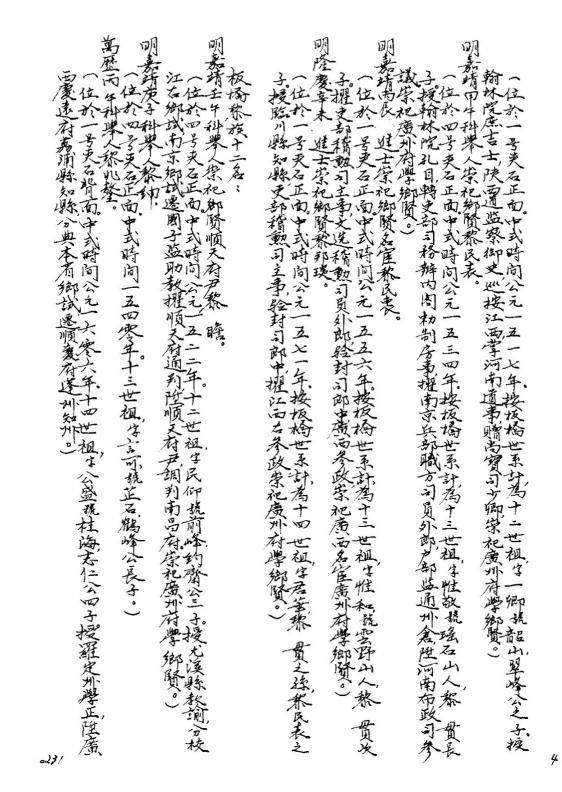 （位於一号夹石正面。中式時間公元一五一七年。按板橋世系計為十二世祖，字一鄉號韶山，翠峰公之子。授
翰林院庶吉士，陝西道監察御史，巡按江西，掌河南道事，贈尚寶司少卿。崇祀廣州府學鄉賢。）
明嘉靖甲午科舉人崇祀鄉賢黎民表。
（位於四号夹石正面。中式時間公元一五三四年。按板橋世系計為十三世祖，字惟敬號瑤石山人，黎　貫長
子。授翰林院孔目，轉吏部司務，辦內閣勑制房事，擢南京兵部職方司員外郎，户部監通州倉，陞河南布政司參
議。崇祀廣州府學鄉賢。）
明嘉靖丙辰　進士崇祀鄉賢名宦黎民衷。
（位於一号夹石正面。中式時間公元一五五六年。按板橋世系計為十三世祖，字惟和號雲野山人，黎　貫次
子。擢吏部稽勳司主事，文选稽勳司員外郎，驗封司郎中，廣西參政。崇祀廣西名宦，廣州府學鄉賢。）
明隆慶辛未　進士崇祀鄉賢黎邦琰。
（位於一号夹石正面。中式時間公元一五七一年。按板橋世系計為十四世祖，字君華，黎　貫之孫，黎民表之
子。授臨川縣知縣，吏部稽勳司主事，驗封司郎中，擢江西右參政。崇祀廣州府學鄉賢。）
板橋黎族十二名：
明嘉靖壬午科舉人崇祀鄉賢順天府尹黎　瞻。
（位於四号夹石正面。中式時間公元一五二二年。十二世祖，字民仰號前峰，約齋公三子。授尤溪縣教諭，分校
江右鄉試，南京鄉試，遷國子監助教，擢順天府通判，陞順天府尹，調判南昌府。崇祀廣州府學鄉賢。）
明嘉靖庚子科舉人黎　紳。
（位於四号夹石正面。中式時間一五四零年。十三世祖，字言可號芷石，鶴峰公長子。）
萬歷丙午科舉人黎兆鰲。
（位於一号夹石背面。中式時間公元一六零六年。十四世祖，字公盛號桂海，志仁公四子。授羅定州學正，陞廣
西慶遠府荔浦縣知縣，分典本省鄉試，遷順慶府蓬州知州。）
4
231